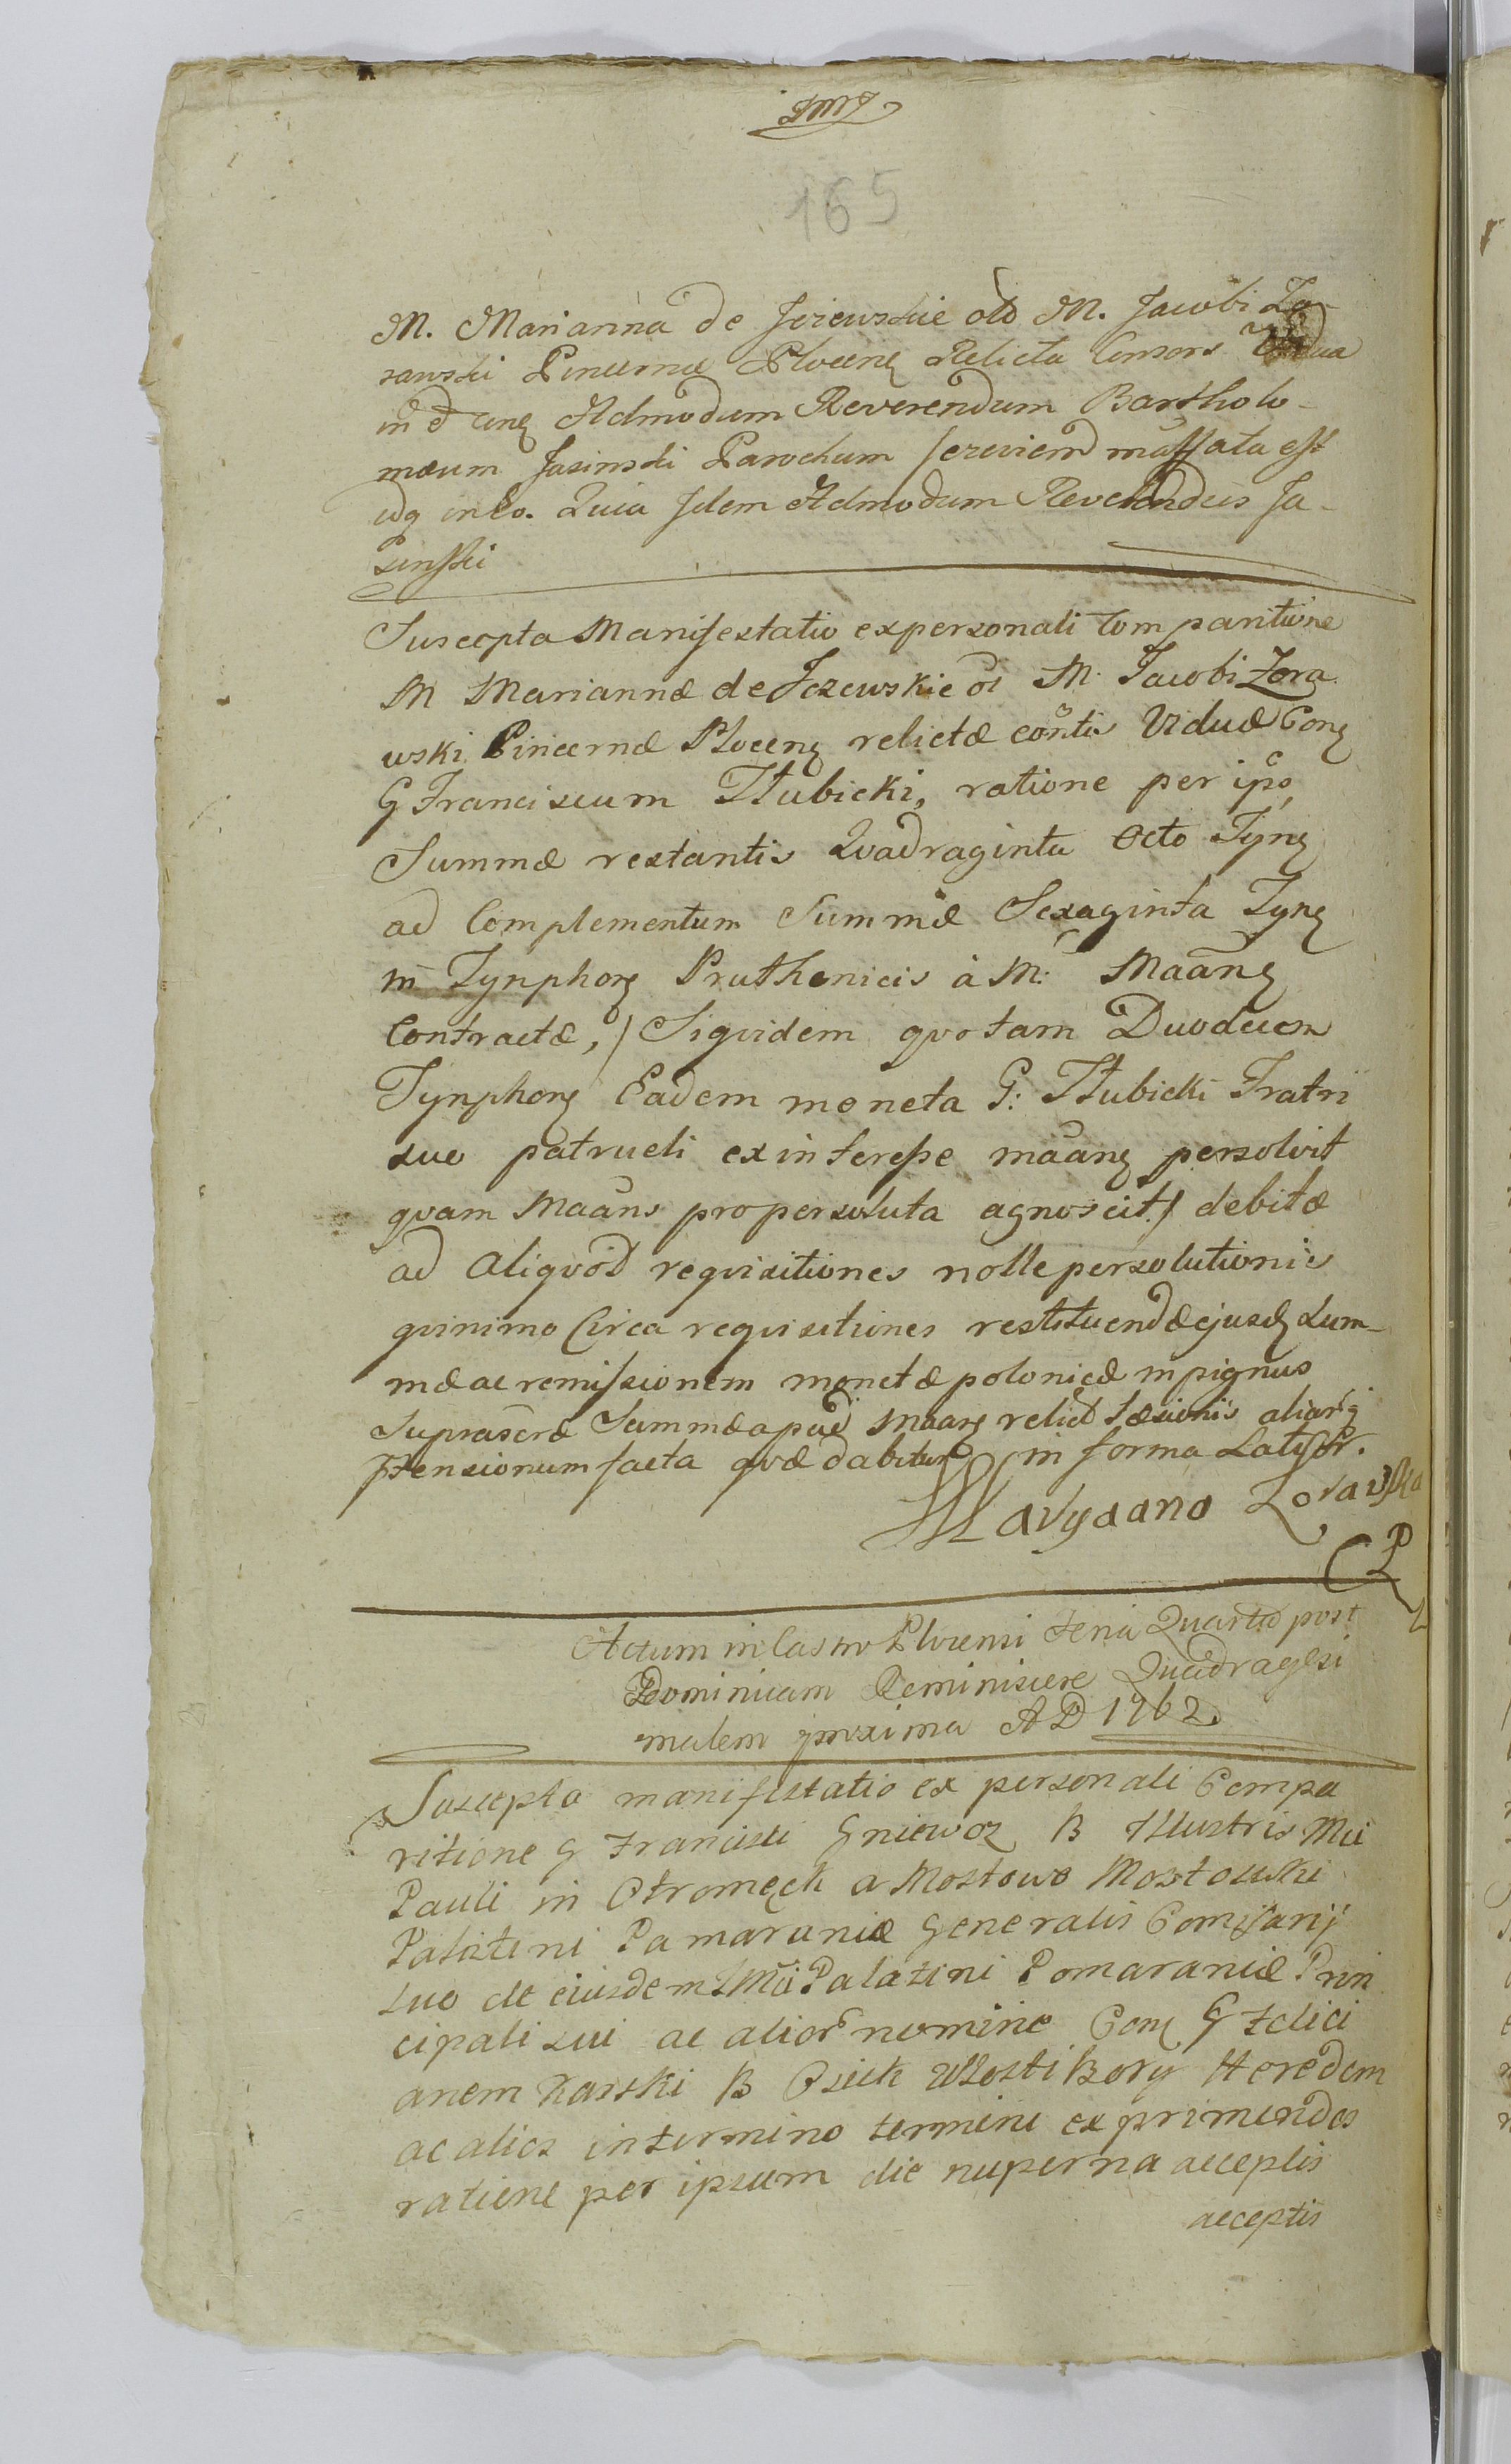 165
M. Marianna de Jezewskie olo M. Jacobi Zo-
rawski Pincernæ Plocen Relicta Consors Vidua
in et con Admodum Reverendum Bartholo-
mæum Jasinski Parochum
idq in eo. Quia Idem Admodum Reverendus Ja-
sinski
Suscepta Manifestatio ex personali Com paritione
M Mariannæ de Jezewskie oi M. Jacobi Zora
wski Pincernæ Plocen relictæ contis Viduæ Con
G Franciscum Tłubicki, ratione per ipõ
Summæ restantis Qvadraginta Octo Tyn
ad Complementum Summæ Sexaginta Tyn
in Tynphon Pruthenicis à M: Maan
Contractæ, / Siqvidem qvotam Duodecem
Tynphon Eadem moneta G: Tłubicki Fratri
suo patrueli ex interesse maan persolvit
qvam Maans pro persoluta agnoscit / debitæ
ad aliqvod reqvisitiones nolle persolutionis
qvinimo Circa reqvisitiones restituendæ ejusd Sum-
mæ ac remissionem monetæ polonicæ in pignus
Suprascræ Summæ apud Maan relict Læsionis aliarq
ptensionum facta qvæ dabitur in forma Latiſsr.
Maryaana Zorawska
CP
Actum in Castro Plocensi Feria Quarta post
Dominicam Reminiscere Quadragesi
malem proxima AD 1762.
Suscepta manifestatio ex personali Compa
ritione G Francisci Gniewoz B Illustris Mci
Pauli in Otromęck a Mostowo Mostowski
Palatini Pamaraniæ Generalis Comissarij
suo de eiusdem I Mci Palatini Pomaraniæ Prin
cipali sui ac alior nomine Con G Felici
anem Karski B Osiek Włosti Bory Heredem
ac alios in termino termini exprimendos
ratione per ipsum die nuperna acceptis
acceptis